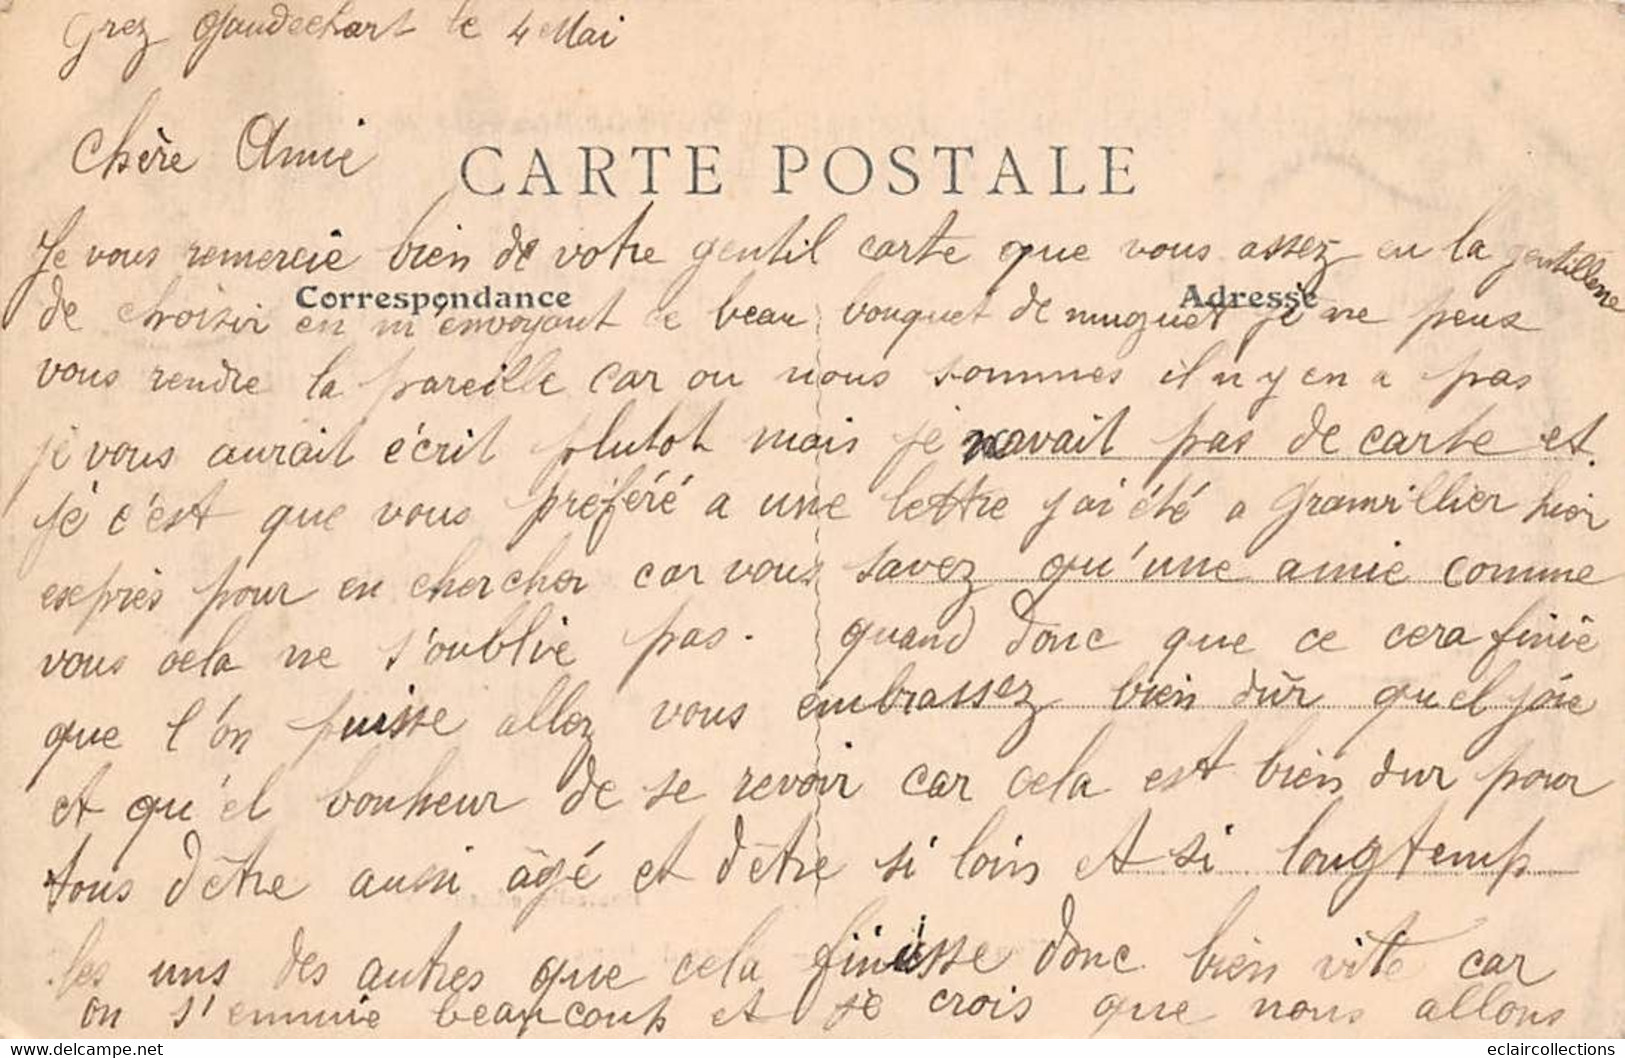 Grez Gaudechart le 4 Mai
Chère Amie
CARTE POSTALE
Je vous remercie bien de votre gentil carte que vous assez eu la gentillesse
Correspondance
Adresse
de choisir en m'envoyant ce beau bouquet de muguet je ne peus
vous rendre la pareille car ou nous sommes il n y en a pas
je vous aurait écrit plutot mais je navait pas de carte et
je c'est que vous préféré a une lettre j'ai été a Granvillier hier
exeprès pour en chercher car vous savez qu'une amie comme
vous cela ne s'oublie pas. quand donc que ce cera finie
que l'on puisse allez vous embrassez bien dûr quel joie
et qu'el bonheur de se revoir car cela est bien dur pour
tous d'être aussi âgé et d'être si loin et si longtemp
les uns des autres que cela finisse donc bien vite car
on s'ennuie beaucoup et je crois que nous allons
www.delcampe.net
eclaircollections